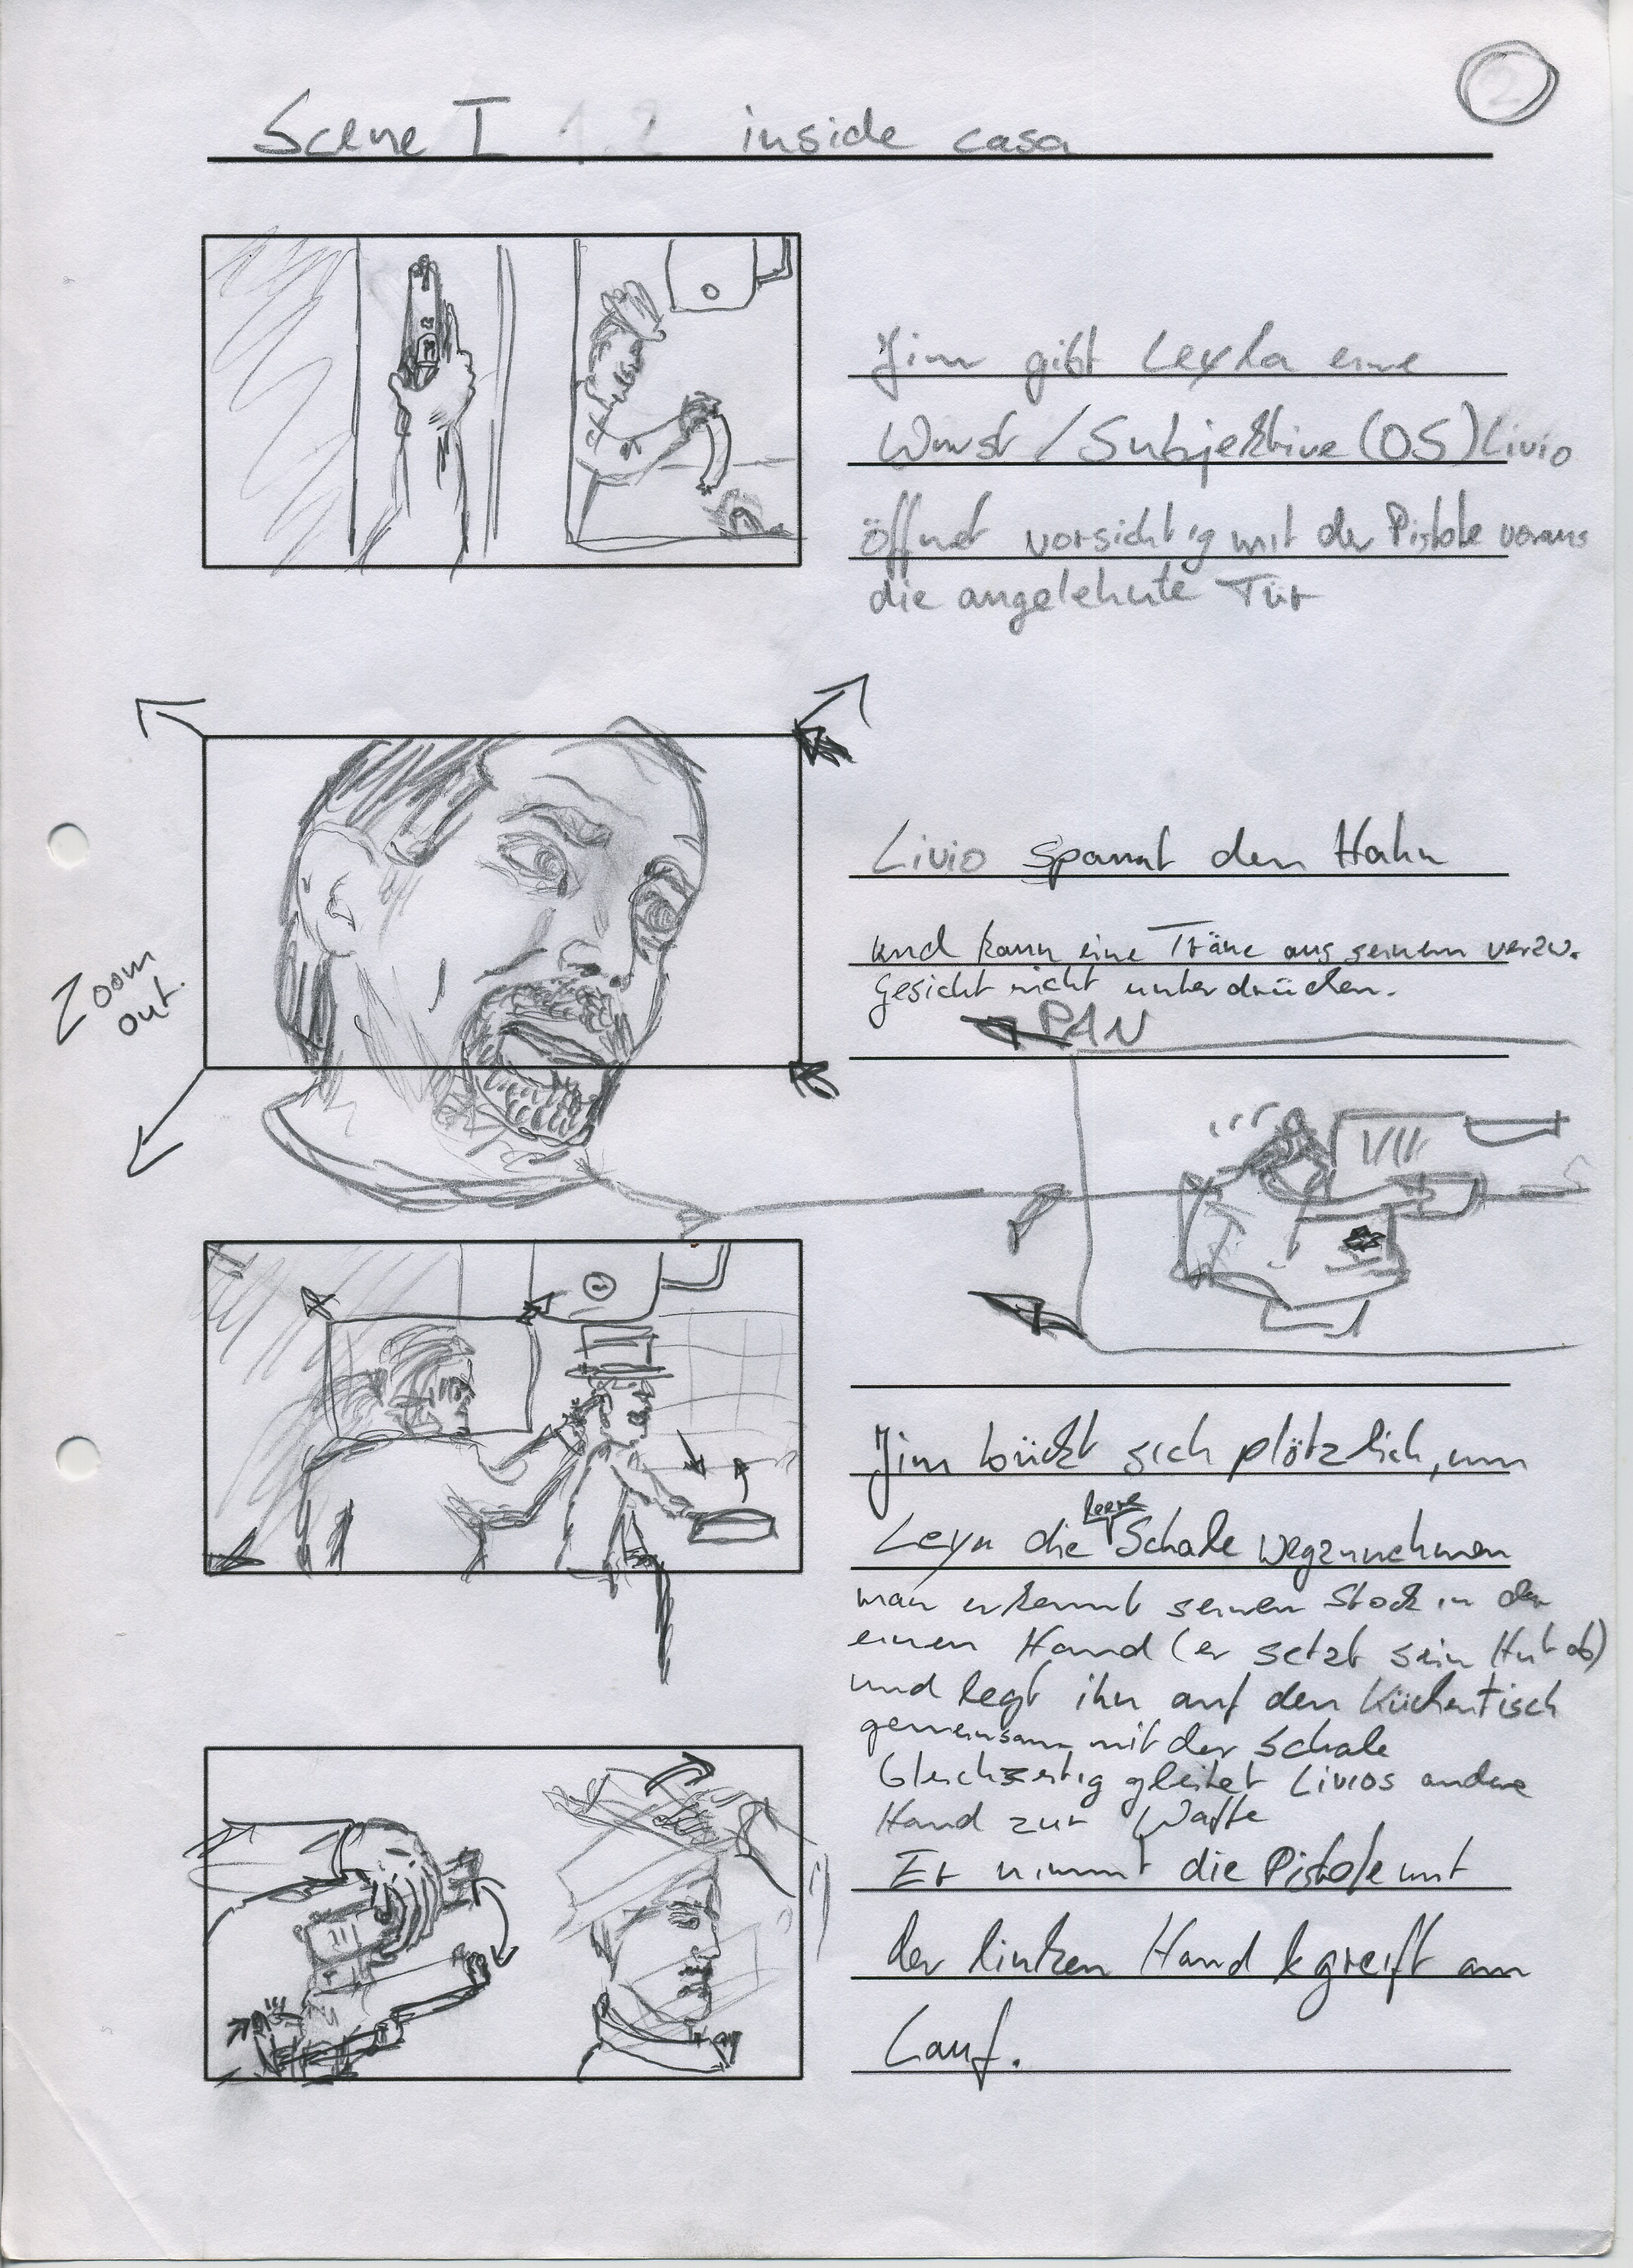 2
Scene I 1.2 inside casa
Jim gibt Leyla eine
Wurst / Subjektive (OS) Livio
öffnet vorsichtig mit der Pistole voraus
die angelehnte Tür
Zoom
out.
Livio spannt den Hahn
und kann eine Träne aus seinem verzw.
Gesicht nicht unterdrücken.
PAN
Jim bückt sich plötzlich, um
leere
Leyn die Schale wegzunehmen
man erkennt seinen Stock in der
einen Hand (er setzt sein Hut ab)
und legt ihn auf den Küchentisch
gemeinsam mit der Schale
Gleichzeitig gleitet Livios andere
Hand zur Waffe
Er nimmt die Pistole mit
der linken Hand & greift am
Lauf.